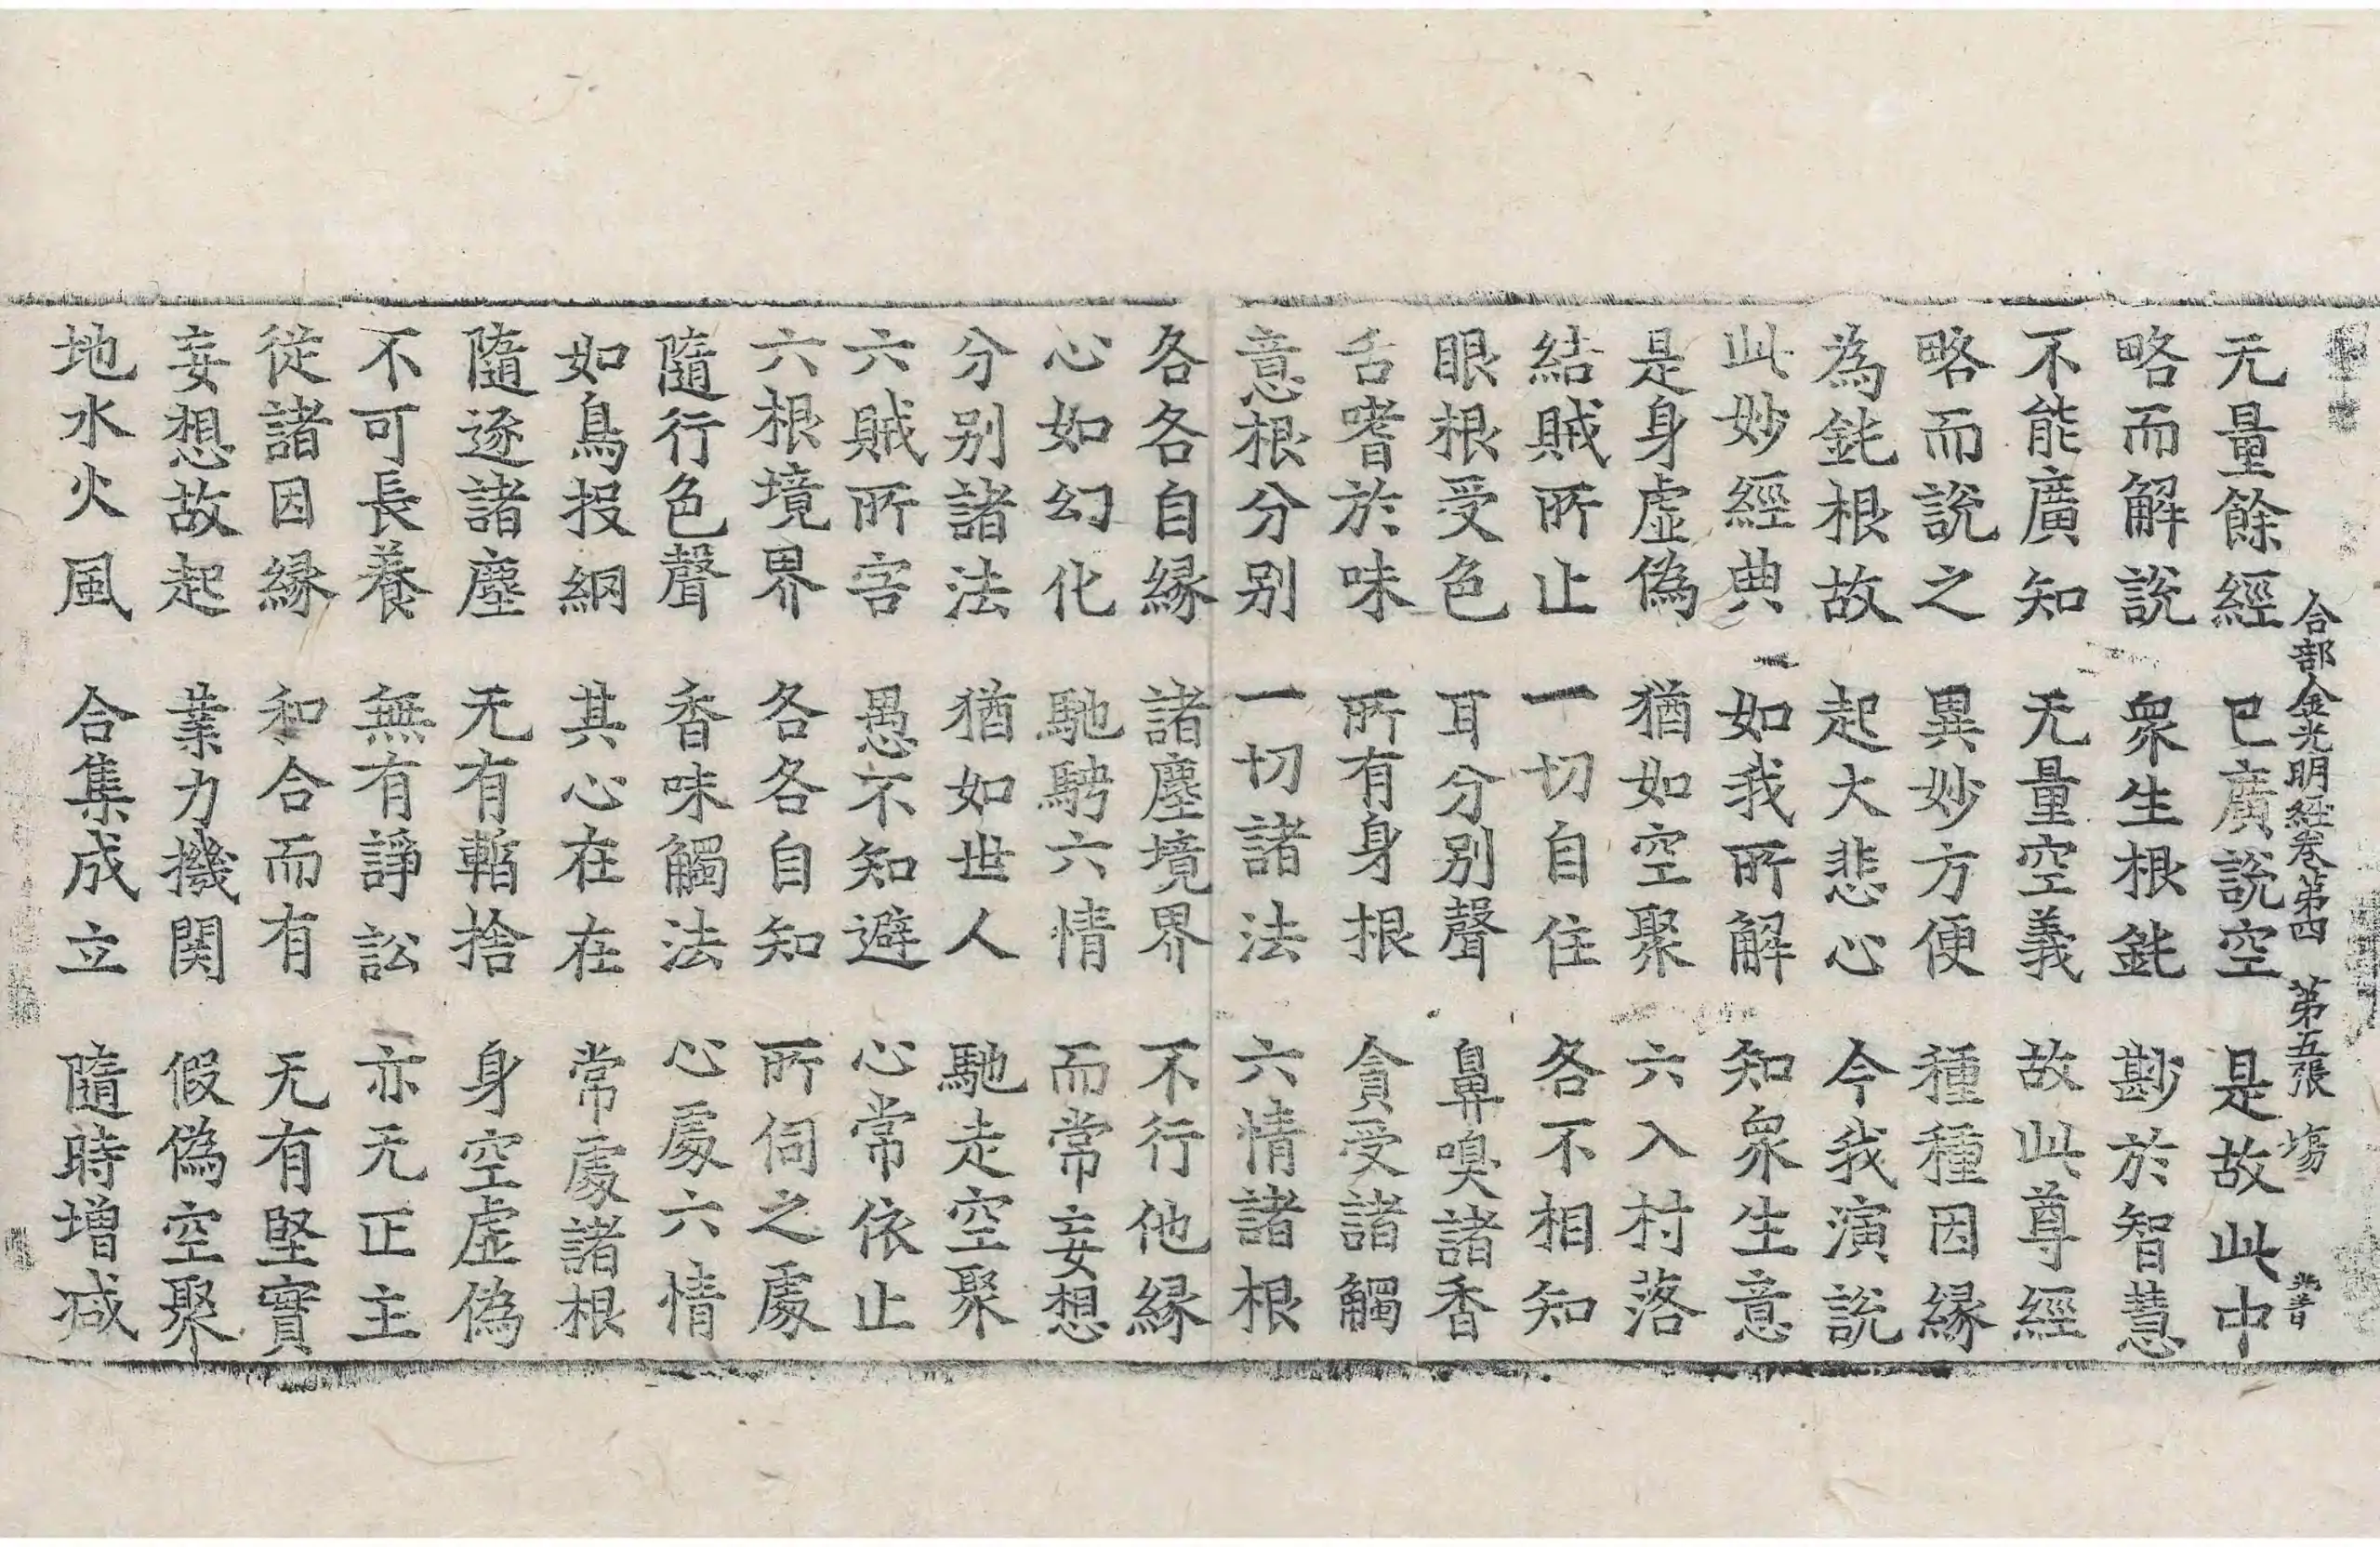 合部金光明經卷第四　第五張　塲
无量餘經　已廣說空　是故此中
略而解說　衆生根鈍　尠於智慧
不能廣知　无量空義　故此尊經
略而說之　異妙方便　種種因緣
為鈍根故　起大悲心　今我演說
此妙經典　如我所解　知衆生意
是身虛偽　猶如空聚　六入村落
結賊所止　一切自住　各不相知
眼根受色　耳分別聲　鼻嗅諸香
舌嗜於味　所有身根　貪受諸觸
意根分別　一切諸法　六情諸根
各各自緣　諸塵境界　不行他緣
心如幻化　馳騁六情　而常妄想
分別諸法　猶如世人　馳走空聚
六賊所害　愚不知避　心常依止
六根境界　各各自知　所伺之處
隨行色聲　香味觸法　心處六情
如鳥投網　其心在在　常處諸根
隨逐諸塵　无有暫捨　身空虛偽
不可長養　無有諍訟　亦无正主
從諸因緣　和合而有　无有堅實
妄想故起　業力機関　假偽空聚
地水火風　合集成立　隨時增減